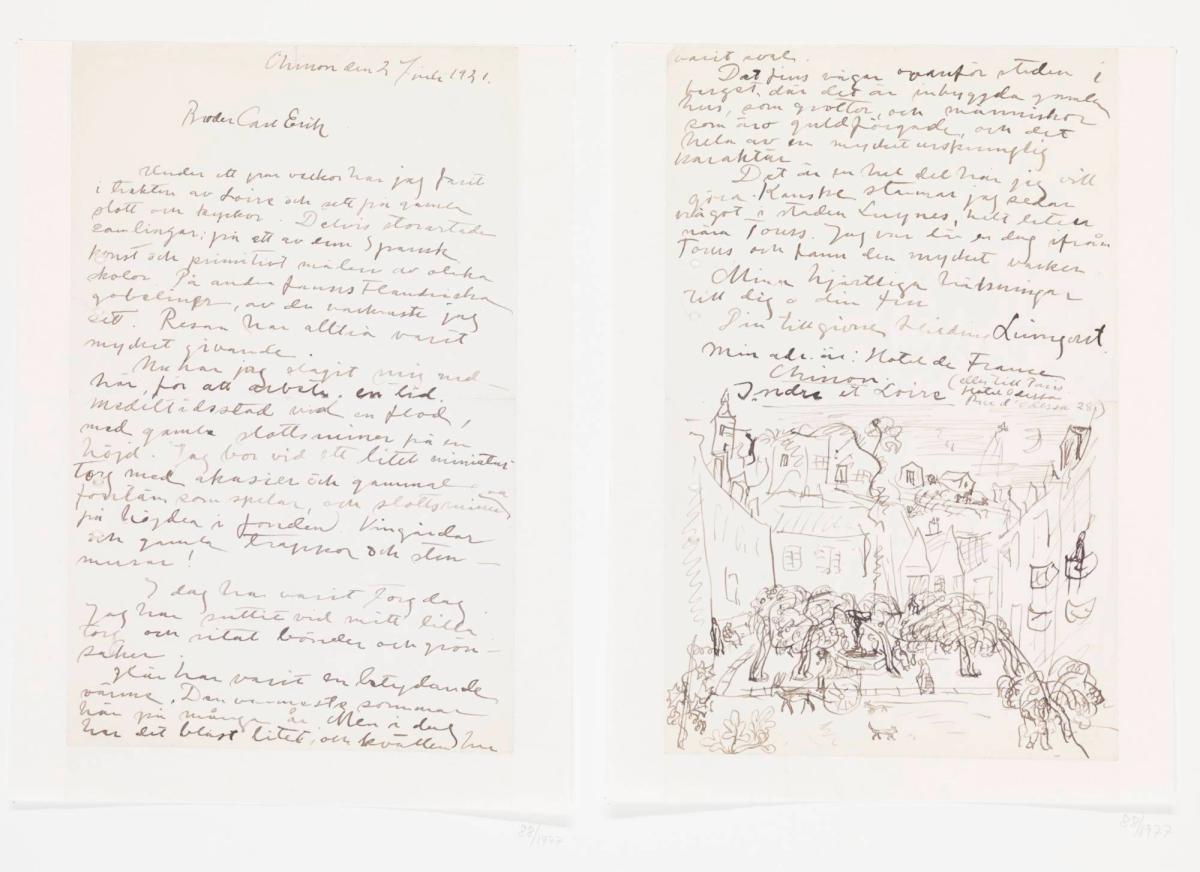 Chinon den 21 juli 1921.
Broder Carl Erik
Under ett par veckor har jag farit
i trakten av Loire och sett på gamla
slott och kyrkor. Delvis storartade
samlingar; på ett av dem Spansk
konst och primitivt måleri av olika
skolor. På andra fanns Flandriska
gobelinger, av de vackraste jag
sett. Resan har alltså varit
mycket givande.
Nu har jag slagit mig ned
här, för att arbeta en tid.
Medeltidsstad vid en flod,
med gamla slottsruiner på en
höjd. Jag bor vid ett litet miniatur-
torg med akasier och gammal
fontän som spelar, och slottsruiner
på höjden i fonden. Vingårdar
och gamla trappor och sten-
murar!
I dag har varit torgdag.
Jag har suttit vid mitt lilla
torg och ritat bönder och grön-
saker.
Här har varit en betydande
värme. Den varmaste sommar
här på många år. Men i dag
har det blåst litet, och kvällen har
varit sval.
Det finns vägar ovanför staden i
berget där det är inbyggda gamla
hus, som grottor, och människor
som äro guldfärgade, och det
hela av en mycket ursprunglig
karaktär.
Det är en hel del här jag vill
göra. Kanske stannar jag sedan
något i staden Luynes, helt liten
nära Tours. Jag var där en dag ifrån
Tours och fann den mycket vacker.
Mina hjärtliga hälsningar
till dig o din fru
Din tillgivne Hilding Linnqvist.
Min adr. är: Hotel de France
Chinon.
Indre et Loire
(eller till Paris
Hotel Odessa
Rue d'Odessa 28)
88/1977
88/1977